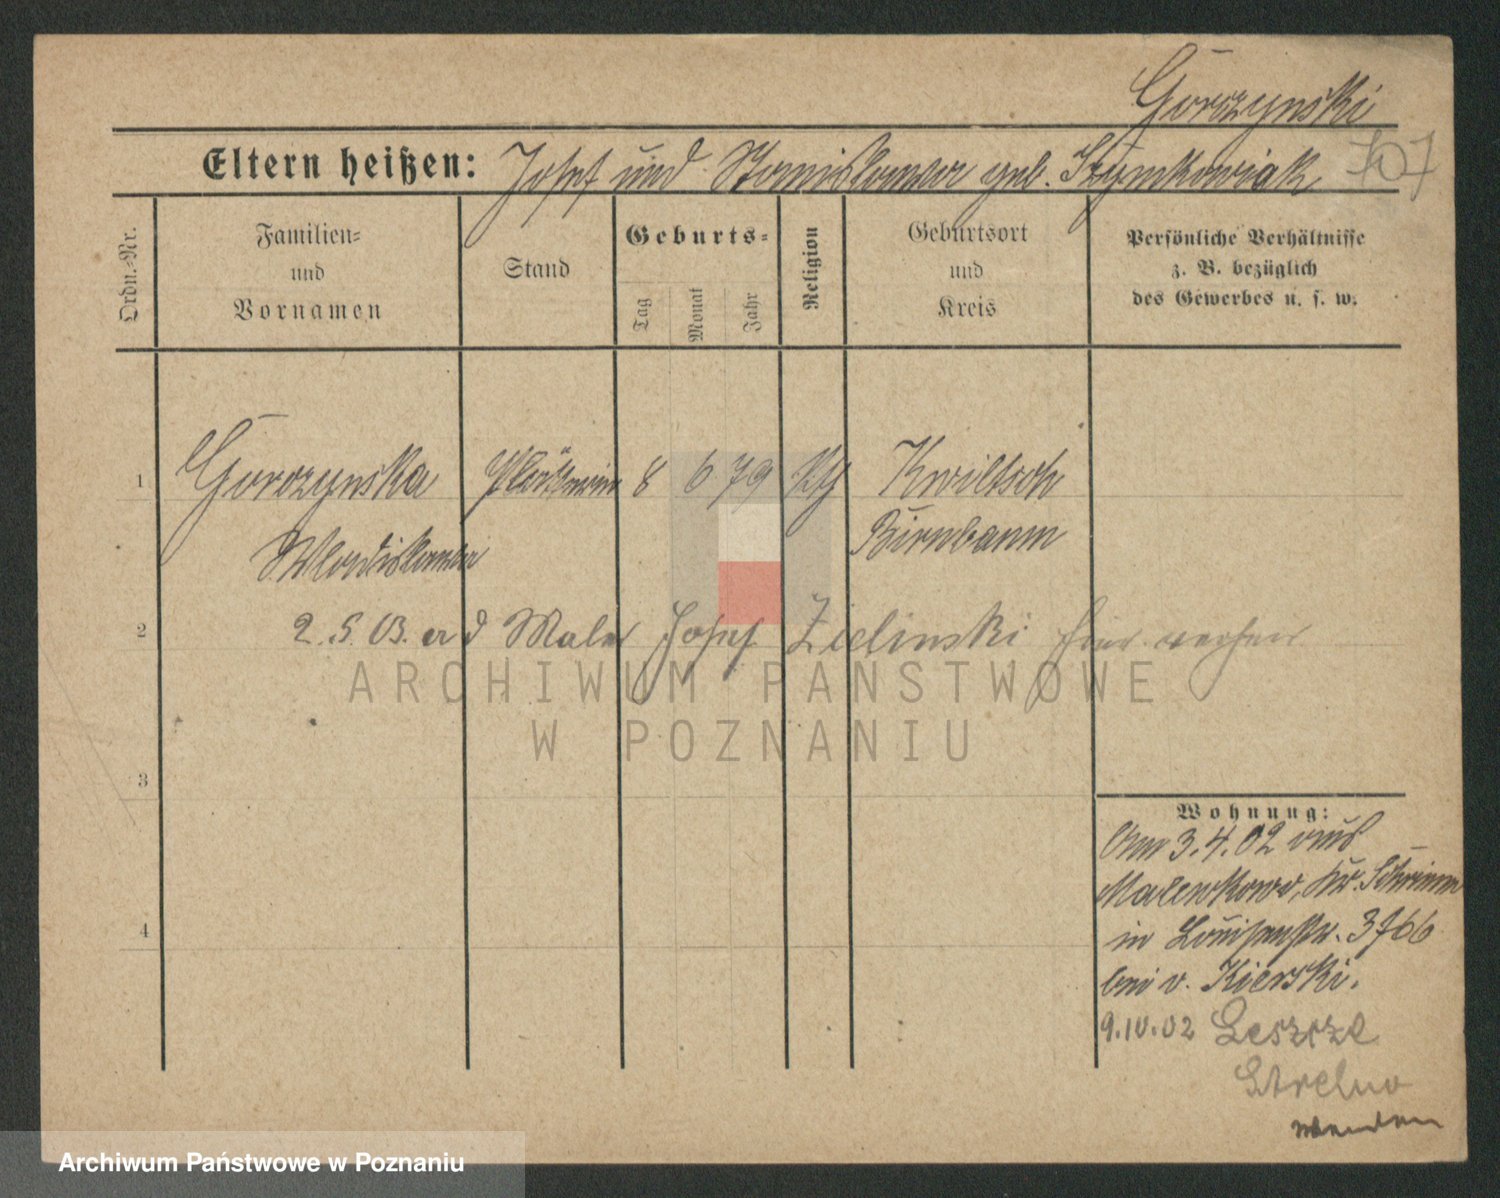 Górczynski
Eltern heißen: Josef und Stanislawa geb. Szymkowiak 707
Ordn.-Nr.
Familien-
und
Vornamen
Stand
Geburts-
Tag
Monat
Jahr
Religion
Geburtsort
und
Kreis
Persönliche Verhältnisse
z. B. bezüglich
des Gewerbes u. s. w.
1 Górczynska Plätterin 8 6 79 Kwiltsch
Wladislawa Birnbaum
2 2. 5. 03. a d Maler Josef Zielinski hier
3
4
Wohnung:
Am 3.4.02 aus
Kr. Schrimm
in Louisenstr.
bei v. Kierski.
9.10.02 Leszcze
Strelno
Wenden
ARCHIWUM PAŃSTWOWE
W POZNANIU
Archiwum Państwowe w Poznaniu